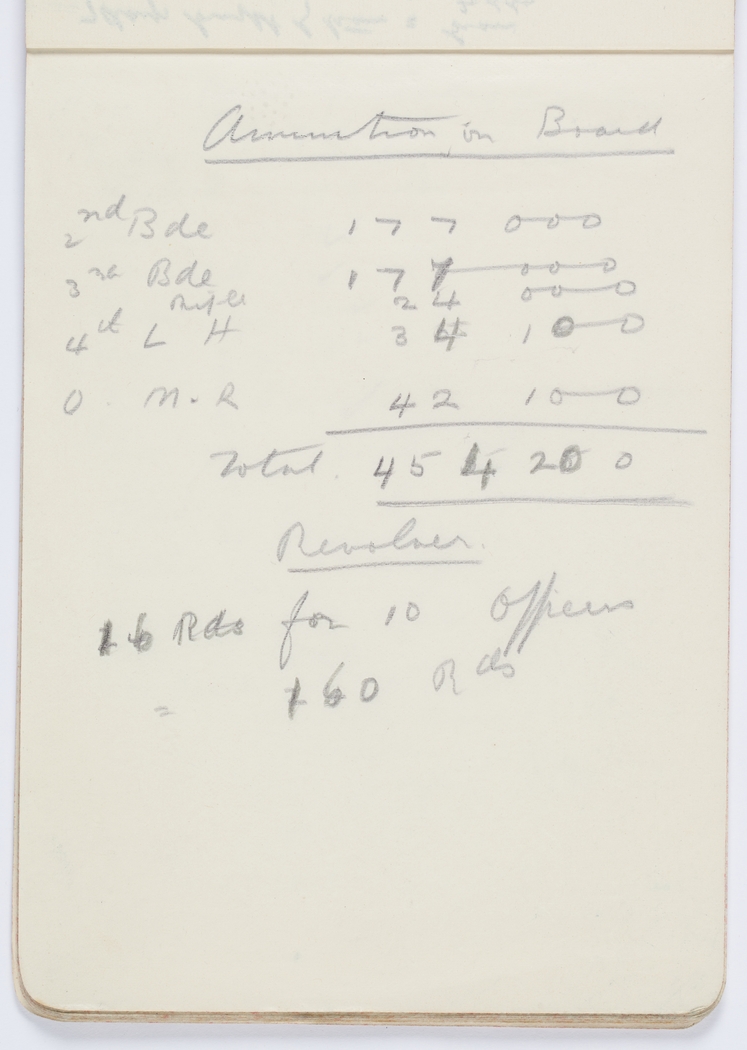 Ammunition on Board
2nd Bde 177 000
3rd Bde 177 000
Rifle 24 000
4th L H 34 100
O. M.R 42 100
Total. 454 200
Revolver.
16 Rds for 10 Officers
= 160 Rds